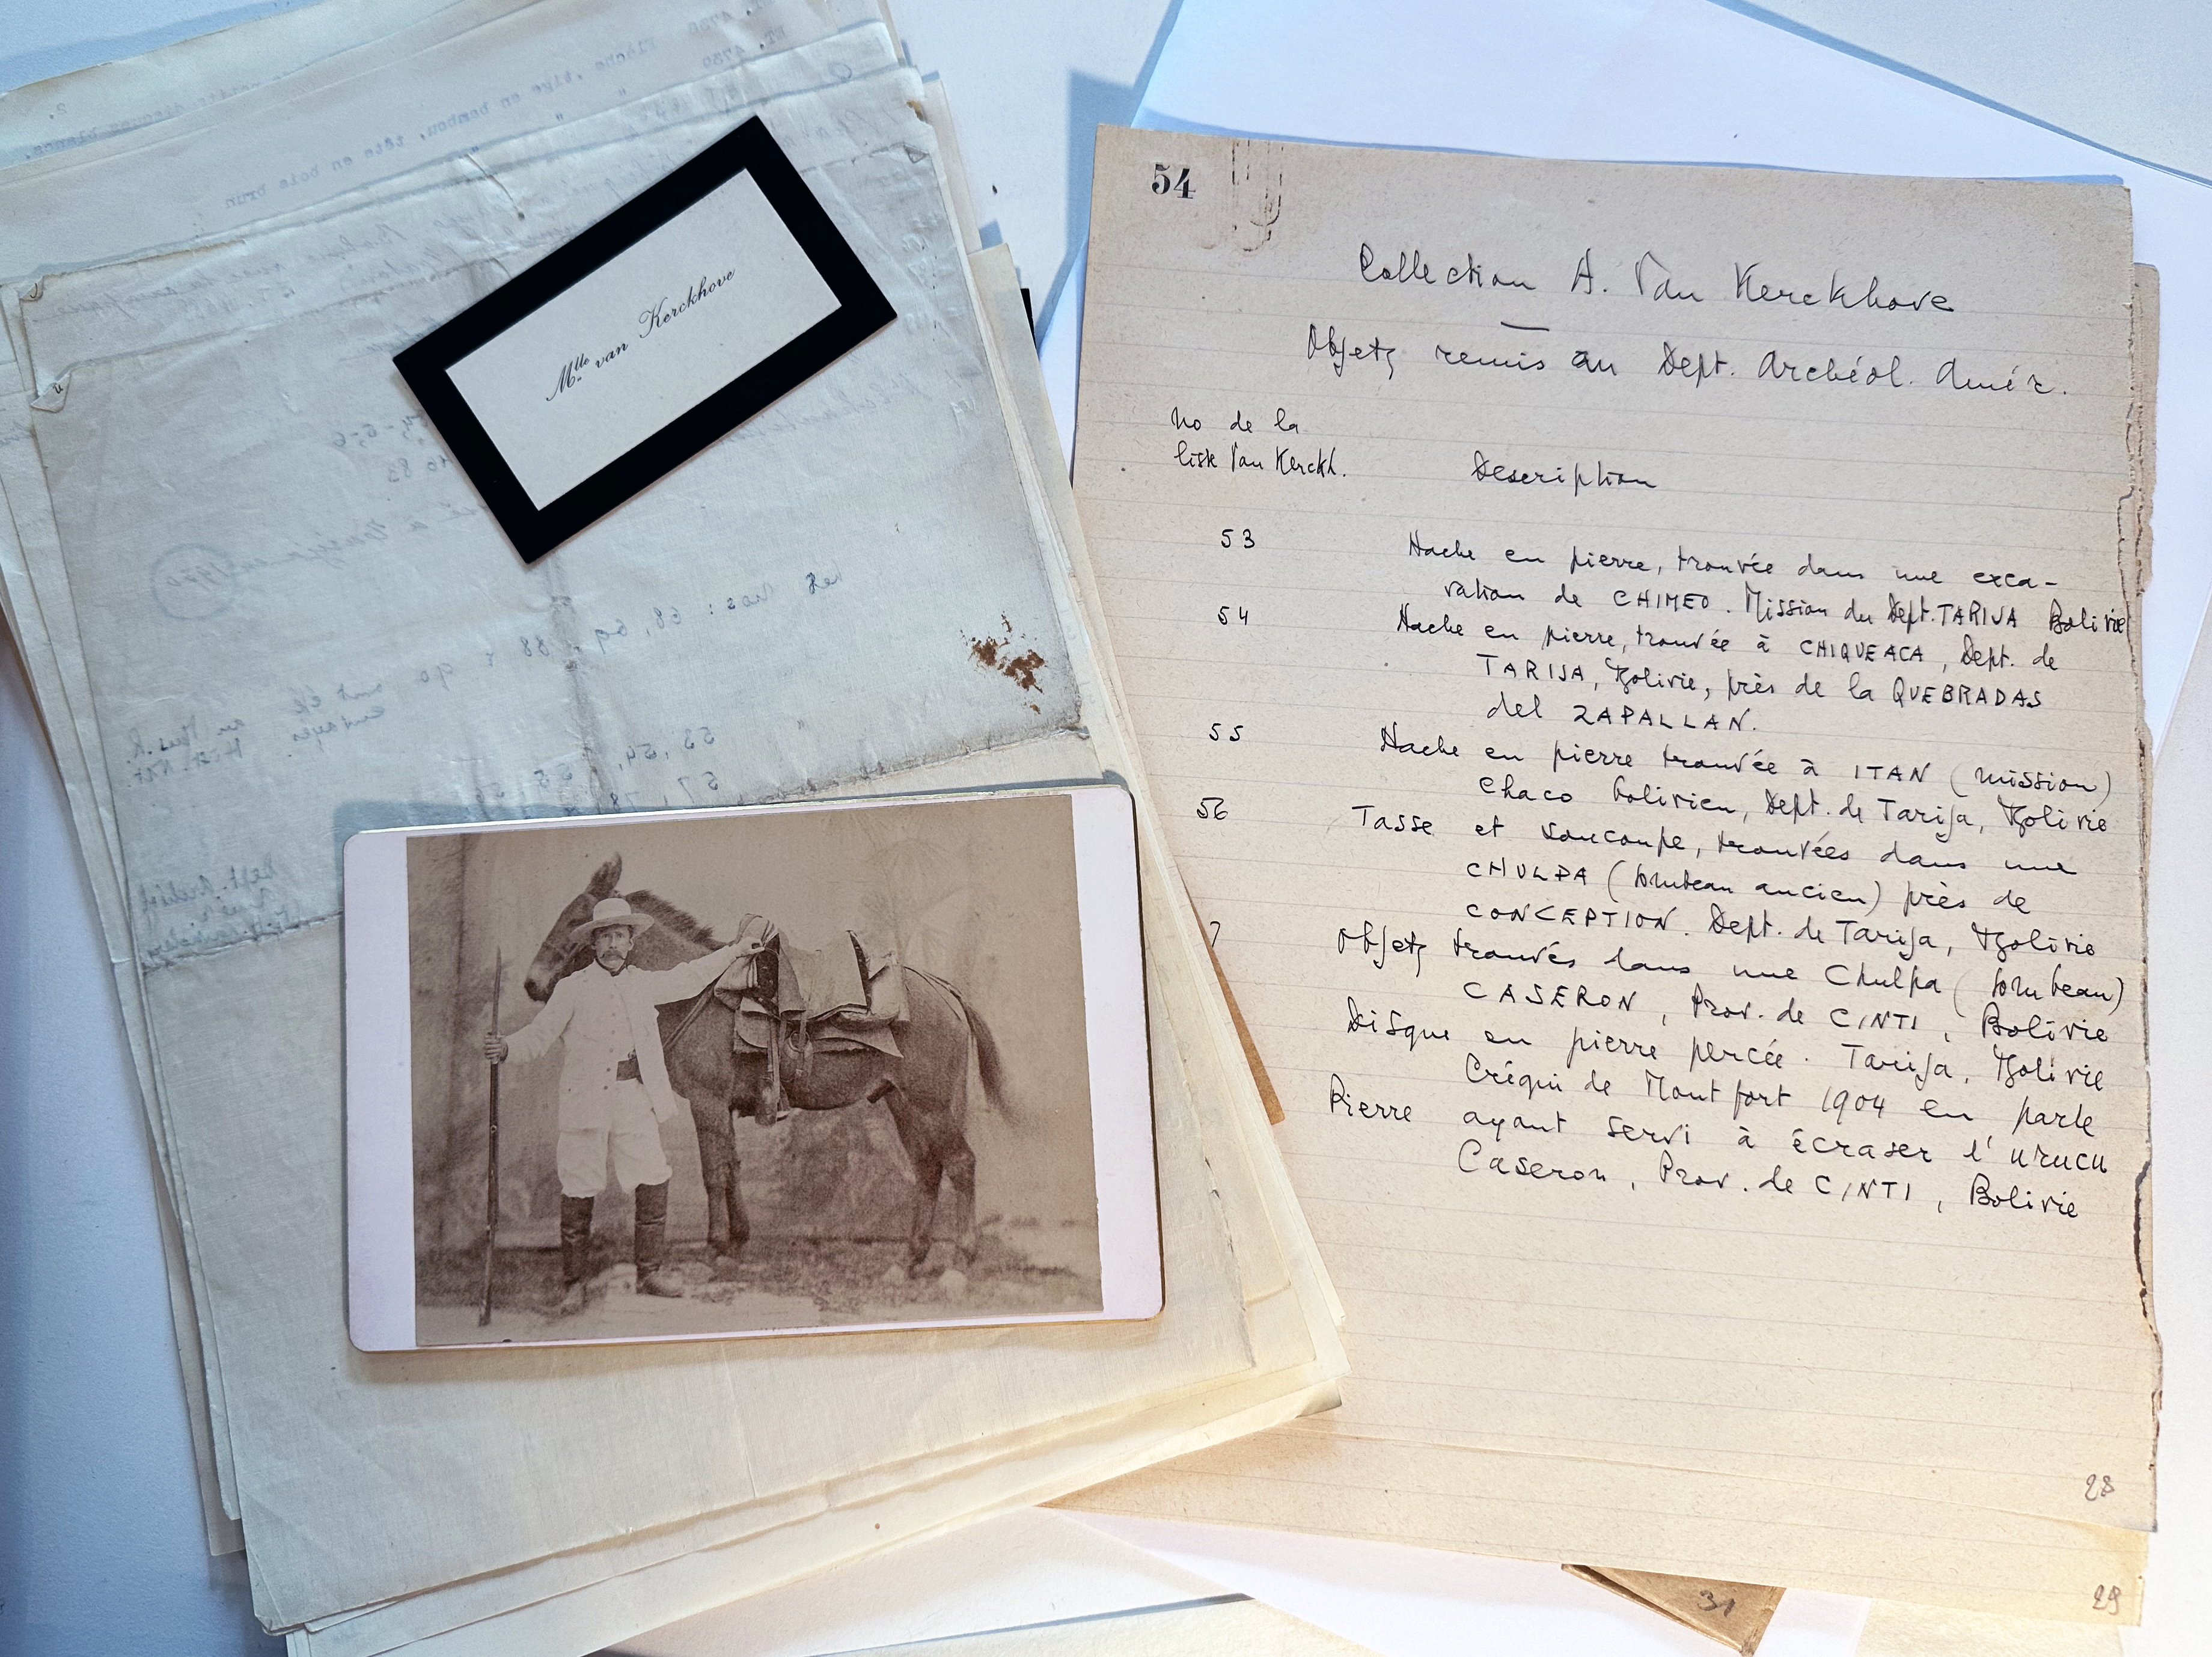 Mlle van Kerckhove
54
Collection A. Van Kerckhove
Objets remis au Dept. Archéol. Amér.
No de la
liste Van Kerckh.
Description
53 Hache en pierre, trouvée dans une exca-
vation de CHIMEO. Mission du Dept. TARIJA Bolivie
54 Hache en pierre, trouvée à CHIQUEACA, Dept. de
TARIJA, Bolivie, près de la QUEBRADAS
del ZAPALLAN.
55 Hache en pierre trouvée à ITAN (mission)
Chaco bolivien, Dept. de Tarija, Bolivie
56 Tasse et soucoupe, trouvées dans une
CHULPA (tombeau ancien) près de
CONCEPTION. Dept. de Tarija, Bolivie
7 Objets trouvés dans une Chulpa (tombeau)
CASERON, Prov. de CINTI, Bolivie
Disque en pierre percée. Tarija, Bolivie
Créqui de Montfort 1904 en parle
Pierre ayant servi à écraser l'urucu
Caseron, Prov. de CINTI, Bolivie
28
29
31